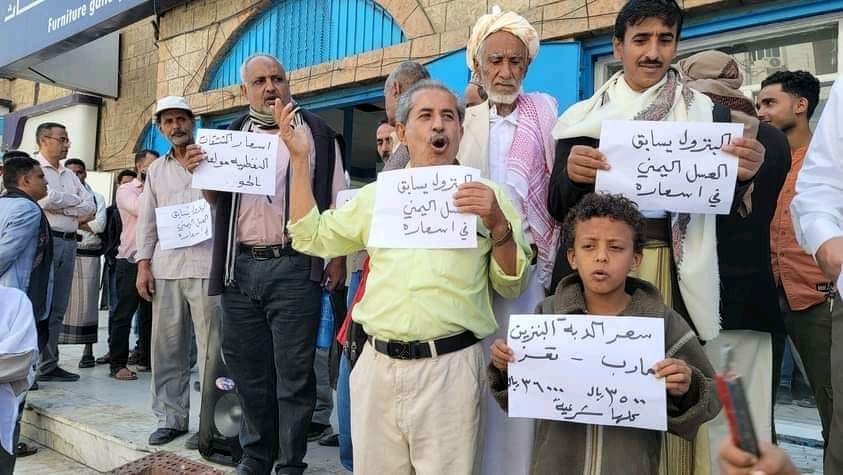 Furniture
اسعار المشتقات
النفطيه مولعه
بالجو
البترول يسابق
العسل اليمني
في اسعاره
البترول يسابق
العسل اليمني
في اسعاره
البترول يسابق
العسل اليمني
في اسعاره
سعر الدبة البنزين
مارب - تعز
٣٥٠٠ ريال ٣٦٠٠٠ ريال
كلها شرعية